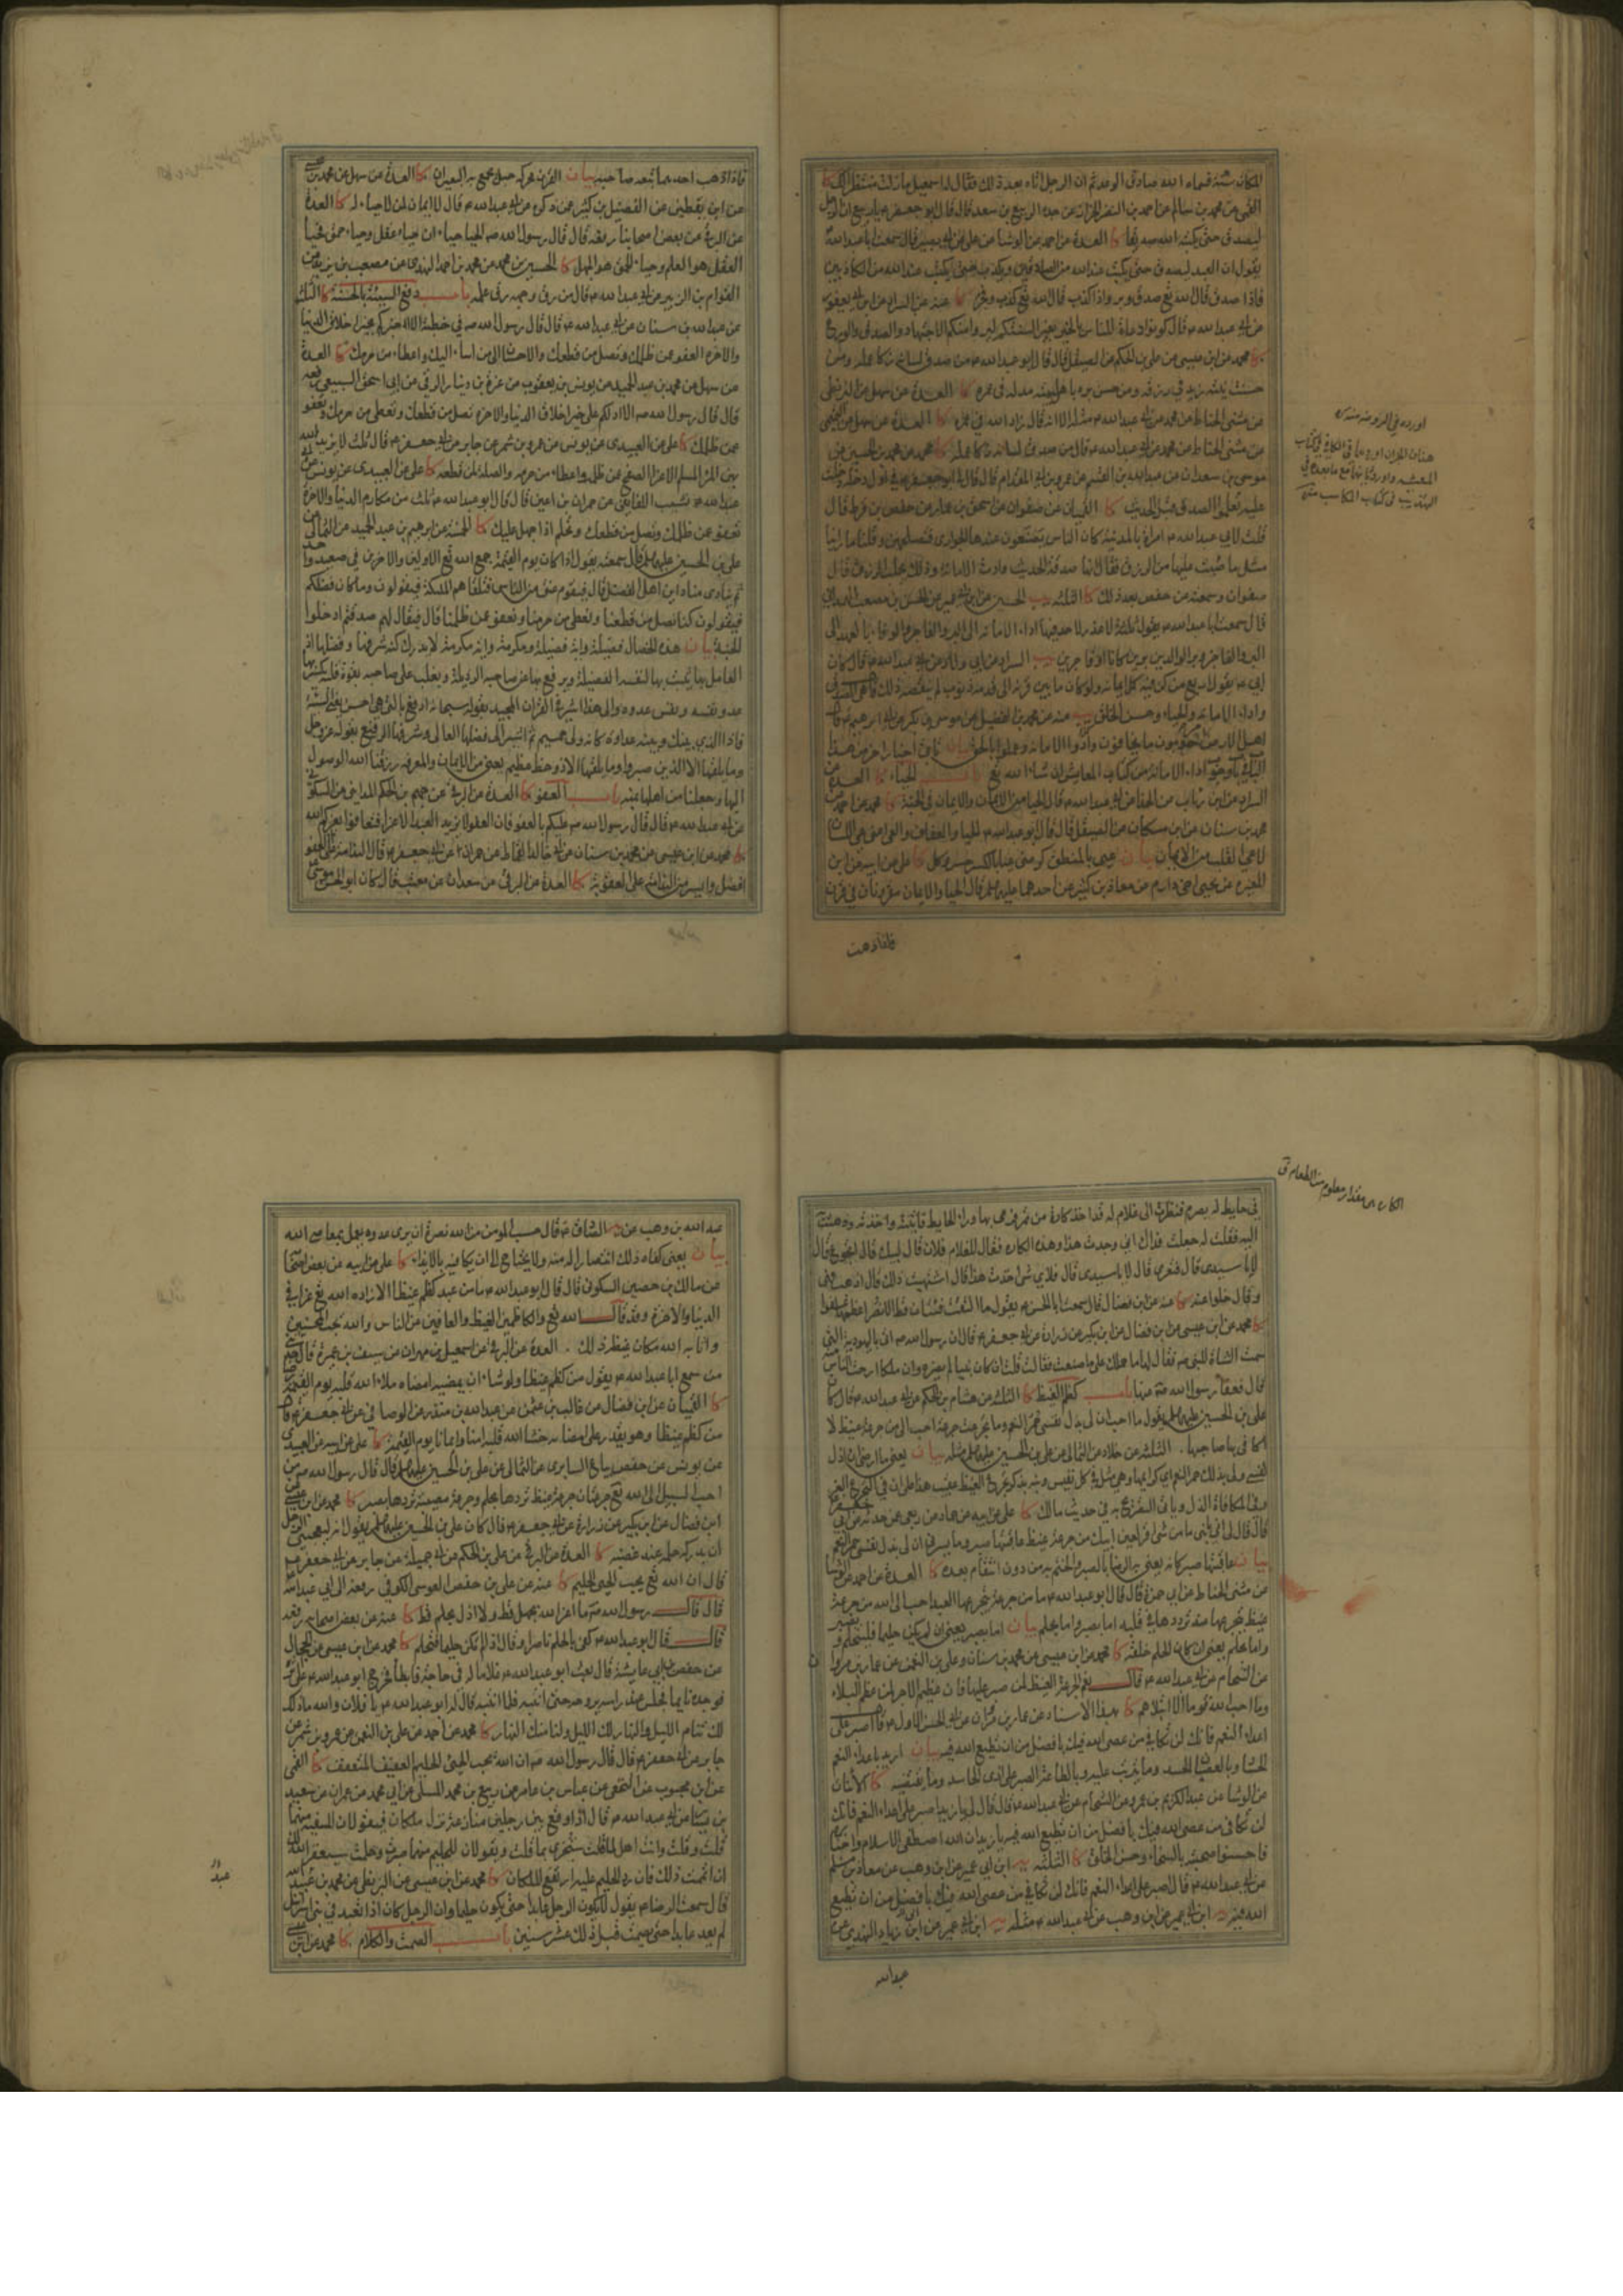 المكان سنة فسماه الله صادق الوعد ثم ان الرجل اتاه بعد ذلك فقال له اسمعيل ما زلت منتظرا لك كا
القمى عن محمد بن سالم عن احمد بن النضر الخزاز عن جده الربيع بن سعد قال قال لى ابو جعفر ع يا ربيع ان الرجل
ليصدق حتى يكتبه الله صديقا كا العدة عن احمد عن الوشا عن على عن ابى بصير قال سمعت ابا عبد الله ع
يقول ان العبد ليصدق حتى يكتب عند الله من الصادقين ويكذب حتى يكتب عند الله من الكاذبين
فاذا صدق قال الله تع صدق وبر واذا كذب قال الله تع كذب وفجر كا عنه عن السراد عن ابن ابى يعفور
عن ابى عبد الله ع قال كونوا دعاة للناس بالخير بغير السنتكم ليروا منكم الاجتهاد والصدق والورع
كا محمد عن ابن عيسى عن على بن الحكم عن الصيقل قال قال ابو عبد الله ع من صدق لسانه زكا عمله ومن
حسنت نيته زيد فى رزقه ومن حسن بره باهل بيته مد له فى عمره كا العدة عن سهل عن البزنطى
عن مثنى الحناط عن محمد عن ابى عبد الله ع مثله الا انه قال زاد الله فى عمره كا العدة عن سهل عن التميمى
عن مثنى الحناط عن محمد عن ابى عبد الله ع قال من صدق لسانه زكا عمله كا محمد عن محمد بن الحسين عن
موسى بن سعدان عن عبد الله بن القسم عن عمرو بن ابى المقدام قال قال لى ابو جعفر ع فى اول دخلة دخلت
عليه تعلموا الصدق قبل الحديث كا القميان عن صفوان عن اسحق بن عمار عن حفص بن قرط قال
قلت لابى عبد الله ع امراة بالمدينة كان الناس يضعون عندها الجوارى فتصلحهن وقلنا ما راينا
مثل ما صب عليها من الرزق فقال انها صدقت الحديث وادت الامانة وذلك يجلب الرزق قال
صفوان وسمعته من حفص بعد ذلك كا الثلثه يب الحسين عن ابن ابى عمير عن الحسين بن مصعب الهمدانى
قال سمعت ابا عبد الله ع يقول ثلثة لا عذر لاحد فيها اداء الامانة الى البر والفاجر والوفاء بالعهد الى
البر والفاجر وبر الوالدين برين كانا او فاجرين يب السراد عن ابى ولاد عن ابى عبد الله ع قال كان
ابى ع يقول اربع من كن فيه كمل ايمانه ولو كان ما بين قرنه الى قدمه ذنوب لم ينقصه ذلك قال هى الصدق
واداء الامانة والحياء وحسن الخلق يب عنه عن محمد بن الفضيل عن موسى بن بكر عن ابى ابرهيم ع قال
اهل الارض مرحومون ما يخافون وادوا الامانة وعملوا بالحق بيان ياتى اخبار اخر من هذا
الباب فى باب وجوب اداء الامانة من كتاب المعايش ان شاء الله تع باب الحياء كا العدة عن
السراد عن ابن رئاب عن الحذاء عن ابى عبد الله ع قال الحياء من الايمان والايمان فى الجنة كا محمد عن احمد عن
محمد بن سنان عن ابن مسكان عن الصيقل قال قال ابو عبد الله ع الحياء والعفاف والعى اعنى عى اللسان
لا عى القلب من الايمان بيان عيى بالمنطق كرضى عيا بالكسر حصر وكل كا على عن ابيه عن ابن
المغيرة عن يحيى اخى دارم عن معاذ بن كثير عن احدهما عليهما السلم قال الحياء والايمان مقرونان فى قرن
فاذا ذهب
اورده فى الروضة منه ره
فاذا ذهب احدهما تبعه صاحبه بيان القرن محركة حبل يجمع به البعيران كا العدة عن سهل عن محمد بن عيسى
عن ابن يقطين عن الفضيل بن كثير عمن ذكره عن ابى عبد الله ع قال لا ايمان لمن لا حياء له كا العدة
عن البرقى عن بعض اصحابنا رفعه قال قال رسول الله ص الحياء حياءان حياء عقل وحياء حمق فحياء
العقل هو العلم وحياء الحمق هو الجهل كا الحسين بن محمد عن محمد بن احمد النهدى عن مصعب بن يزيد عن
العوام بن الزبير عن ابى عبد الله ع قال من رق وجهه رق علمه باب دفع السيئة بالحسنة كا الثلثه
عن عبد الله بن سنان عن ابى عبد الله ع قال قال رسول الله ص فى خطبته الا اخبركم بخير خلايق الدنيا
والاخرة العفو عمن ظلمك وتصل من قطعك والاحسان الى من اساء اليك واعطاء من حرمك كا العدة
عن سهل عن محمد بن عبد الحميد عن يونس بن يعقوب عن غرة بن دينار الرقى عن ابى اسحق السبيعى رفعه
قال قال رسول الله ص الا ادلكم على خير اخلاق الدنيا والاخرة تصل من قطعك وتعطى من حرمك وتعفو
عمن ظلمك كا على عن العبيدى عن يونس عن عمرو بن شمر عن جابر عن ابى جعفر ع قال ثلث لا يزيد الله
بهن المرء المسلم الا عزا الصفح عمن ظلمه واعطاء من حرمه والصلة لمن قطعه كا على عن العبيدى عن يونس عن ابى
عبد الله ع نشيب اللفايفى عن حمران بن اعين قال قال ابو عبد الله ع ثلث من مكارم الدنيا والاخرة
تعفو عمن ظلمك وتصل من قطعك وتحلم اذا جهل عليك كا الخمسة عن ابرهيم بن عبد الحميد عن الثمالى عن
على بن الحسين عليهما السلم قال سمعته يقول اذا كان يوم القيمة جمع الله تع الاولين والاخرين فى صعيد واحد
ثم ينادى مناد اين اهل الفضل قال فيقوم عنق من الناس فتلقاهم الملئكة فيقولون وما كان فضلكم
فيقولون كنا نصل من قطعنا ونعطى من حرمنا ونعفو عمن ظلمنا قال فيقال لهم صدقتم ادخلوا
الجنة بيان هذه الخصال فضيلة واية فضيلة ومكرمة واية مكرمة لا يدرك كنه شرفها وفضلها اذ
العامل بها يثبت بها لنفسه الفضيلة ويرفع بها عن صاحبه الرذيلة ويغلب على صاحبه بقوة قلبه يكسر بها
عدو نفسه ونفس عدوه والى هذا اشير فى القران المجيد بقوله سبحانه ادفع بالتى هى احسن يعنى السيئة
فاذا الذى بينك وبينه عداوة كانه ولى حميم ثم اشير الى فضلها العالى وشرفها الرفيع بقوله عز وجل
وما يلقيها الا الذين صبروا وما يلقيها الا ذو حظ عظيم يعنى من الايمان والمعرفة رزقنا الله الوصول
اليها وجعلنا من اهلها بمنه باب العفو كا العدة عن البرقى عن جهم بن الحكم المداينى عن السكونى
عن ابى عبد الله ع قال قال رسول الله ص عليكم بالعفو فان العفو لا يزيد العبد الا عزا فتعافوا يعزكم الله
كا محمد عن ابن عيسى عن محمد بن سنان عن ابى خالد القماط عن حمران عن ابى جعفر ع قال الندامة على العفو
افضل وايسر من الندامة على العقوبة كا العدة عن البرقى عن سعدان عن معتب قال كان ابو الحسن موسى ع
الكارة مقدار معلوم من الطعام ق
فى حايط له يصرم فنظرت الى غلام له قد اخذ كارة من تمر فرمى بها وراء الحايط فاتيته واخذته وذهبت به
اليه فقلت له جعلت فداك انى وجدت هذا وهذه الكارة فقال للغلام فلان قال لبيك قال اتجوع قال
لا يا سيدى قال فتعرى قال لا يا سيدى قال فلاى شىء اخذت هذا قال اشتهيت ذلك قال اذهب فهى لك
وقال خلوا عنه كا عنه عن ابن فضال قال سمعت ابا الحسن ع يقول ما التقت فئتان قط الا نصر اعظمهما عفوا
كا محمد عن ابن عيسى عن ابن فضال عن ابن بكير عن زرارة عن ابى جعفر ع قال ان رسول الله ص اتى باليهودية التى
سمت الشاة للنبى ص فقال لها ما حملك على ما صنعت فقالت قلت ان كان نبيا لم يضره وان ملكا ارحت الناس منه
قال فعفا رسول الله ص عنها باب كظم الغيظ كا الثلثه عن هشام بن الحكم عن ابى عبد الله ع قال كان
على بن الحسين عليهما السلم يقول ما احب ان لى بذل نفسى حمر النعم وما تجرعت جرعة احب الى من جرعة غيظ لا
اكافى بها صاحبها . الثلثه عن خلاد عن الثمالى عن على بن الحسين عليهما السلم مثله بيان يعنى ما ارضى ان اذل
نفسى ولى بذلك حمر النعم اى كرايمها وهى مثل فى كل نفيس ونبه بذكر تجرع الغيظ عقيب هذا على ان فى التجرع العز
وفى المكافاة الذل وياتى التصريح به فى حديث مالك كا على عن ابيه عن حماد عن ربعى عمن حدثه عن ابى جعفر ع
قال قال لى ابى يا بنى ما من شىء اقر لعين ابيك من جرعة غيظ عاقبتها صبر وما يسرنى ان لى بذل نفسى حمر النعم
بيان عاقبتها صبر كانه يعنى به الرضا بالصبر والختم به من دون انتقام بعده كا العدة عن احمد عن الوشا
عن مثنى الحناط عن ابى حمزة قال قال ابو عبد الله ع ما من جرعة يتجرعها العبد احب الى الله من جرعة
غيظ يتجرعها عند ترددها فى قلبه اما بصبر واما بحلم بيان اما بصبر يعنى ان لم يكن حليما فليتحلم ويصبر
واما بحلم يعنى ان كان الحلم خلقه كا محمد عن ابن عيسى عن محمد بن سنان وعلى بن النعمن عن عمار بن مروان
عن الشحام عن ابى عبد الله ع قال نعم الجرعة الغيظ لمن صبر عليها فان عظيم الاجر لمن عظيم البلاء
وما احب الله قوما الا ابتلاهم كا بهذا الاسناد عن عمار بن مروان عن ابى الحسن الاول ع قال اصبر على
اعداء النعم فانك لن تكافى من عصى الله فيك بافضل من ان تطيع الله فيه بيان اريد باعداء النعم
الحساد وبالعصيان الحسد وما يترتب عليه وبالطاعة الصبر على اذى الحاسد وما يقتضيه كا الاثنان
عن الوشا عن عبد الكريم بن عمرو عن الشحام عن ابى عبد الله ع قال قال لى يا زيد اصبر على اعداء النعم فانك
لن تكافى من عصى الله فيك بافضل من ان تطيع الله فيه يا زيد ان الله اصطفى الاسلام واختاره
فاحسنوا صحبته بالسخاء وحسن الخلق كا الثلثه يه ابن ابى عمير عن ابن وهب عن معاذ بن مسلم
عن ابى عبد الله ع قال اصبر على اعداء النعم فانك لن تكافى من عصى الله فيك بافضل من ان تطيع
الله فيه يه ابن ابى عمير عن ابن وهب عن ابى عبد الله ع مثله يه ابن ابى عمير عن ابن ابى زياد النهدى عن
عبد الله
عبد الله بن وهب عن الصادق ع قال حسب المومن من الله نصرة ان يرى عدوه يعمل بمعاصى الله
بيان يعنى كفاه ذلك انتصارا له منه ولا يحتاج الى ان يكافيه بالايذاء كا على عن ابيه عن بعض اصحابه
عن مالك بن حصين السكونى قال قال ابو عبد الله ع ما من عبد كظم غيظا الا زاده الله تع عزا فى
الدنيا والاخرة وقد قال الله تع والكاظمين الغيظ والعافين عن الناس والله يحب المحسنين
واثابه الله مكان غيظه ذلك . العدة عن البرقى عن اسمعيل بن مهران عن سيف بن عميرة قال حدثنى
من سمع ابا عبد الله ع يقول من كظم غيظا ولو شاء ان يمضيه امضاه ملاء الله قلبه يوم القيمة رضاه
كا القميان عن ابن فضال عن غالب بن عثمن عن عبد الله بن منذر عن الوصافى عن ابى جعفر ع قال
من كظم غيظا وهو يقدر على امضائه حشا الله قلبه امنا وايمانا يوم القيمة كا على عن ابيه عن العبيدى
عن يونس عن حفص بياع السابرى عن الثمالى عن على بن الحسين عليهما السلم قال قال رسول الله ص من
احب السبيل الى الله تع جرعتان جرعة غيظ تردها بحلم وجرعة مصيبة تردها بصبر كا محمد عن ابن عيسى عن
ابن فضال عن ابن بكير عن زرارة عن ابى جعفر ع قال كان على بن الحسين عليهما السلم يقول انه ليعجبنى الرجل
ان يدركه حلمه عند غضبه كا العدة عن البرقى عن على بن الحكم عن ابى جميلة عن جابر عن ابى جعفر ع
قال ان الله تع يحب الحيى الحليم كا عنه عن على بن حفص العوسى الكوفى رفعه الى ابى عبد الله ع
قال قال رسول الله ص ما اعز الله بجهل قط ولا اذل بحلم قط كا عنه عن بعض اصحابه رفعه
قال قال ابو عبد الله ع كفى بالحلم ناصرا وقال اذا لم تكن حليما فتحلم كا محمد عن ابن عيسى عن الحجال
عن حفص بن ابى عايشة قال بعث ابو عبد الله ع غلاما له فى حاجة فابطا فخرج ابو عبد الله ع على اثره
فوجده نايما فجلس عند راسه يروحه حتى انتبه فلما انتبه قال له ابو عبد الله ع يا فلان والله ما ذلك
لك تنام الليل والنهار لك الليل ولنا منك النهار كا محمد عن احمد عن على بن النعمن عن عمرو بن شمر عن
جابر عن ابى جعفر ع قال قال رسول الله ص ان الله يحب الحيى الحليم العفيف المتعفف كا القمى
عن ابن محبوب عن النخعى عن عباس بن عامر عن ربيع بن محمد المسلى عن ابى محمد عن عمران عن سعيد
بن يسار عن ابى عبد الله ع قال اذا وقع بين رجلين منازعة نزل ملكان فيقولان للسفيه منهما
قلت وقلت وانت اهل لما قلت ستجزى بما قلت ويقولان للحليم منهما صبرت وحلمت سيغفر الله لك
ان اتممت ذلك فان رد الحليم عليه ارتفع الملكان كا محمد عن ابن عيسى عن البزنطى عن محمد بن عبيد الله
قال سمعت الرضا ع يقول لا يكون الرجل عابدا حتى يكون حليما وان الرجل كان اذا تعبد فى بنى اسرائيل
لم يعد عابدا حتى يصمت قبل ذلك عشر سنين باب الصمت والكلام كا محمد عن ابن عيسى